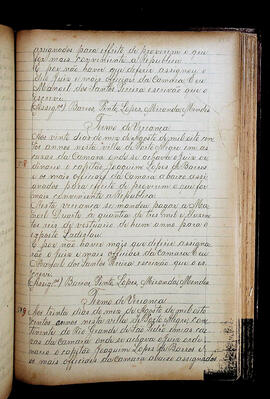 assignados para effeito de proverem o que
for mais conviniente a Republica.
E por não haver que deferir assignou o
dito Juiz e mais officiaes da Camara E eu
Manoel dos Santos Pereira escrivão que o
escrevi
(Assigs.) Barros, Pinto Lopes, Miranda, Mendes
Termo de Vereança
Aos vinte dias do mez de Agosto de mil oito cen
tos annos nesta villa de Porto Alegre em as
casas da Camara onde se achava o Juiz or
dinario o capitão Joaquim Lopes de Barros
e os mais officiaes da Camara abaixo assi
gnados para effeito de proverem o que for
mais conveniente a Republica.
Nesta vereança se mandou pagar a Ma
noel Duarte a quantia de tres mil e
reis de vestuario de hum anno para o
exposto Ladislau
E por não haver mais que deferir assigna
rão o Juiz e mais officiaes da Camara E eu
Manoel dos Santos Pereira escrivão que o es
crevi.
(Assigs.) Barros, Pinto Lopes, Miranda, Mendes
Termo de Vereança
Aos trinta dias do mez de Agosto de mil oito
centos annos nesta villa de Porto Alegre, Con
tinente do Rio Grande de São Pedro em as ca
zas da Camara onde se achava o Juiz ordi
nario o capitão Joaquim Lopes de Barros e
os mais officiaes da Camara abaixo assignados